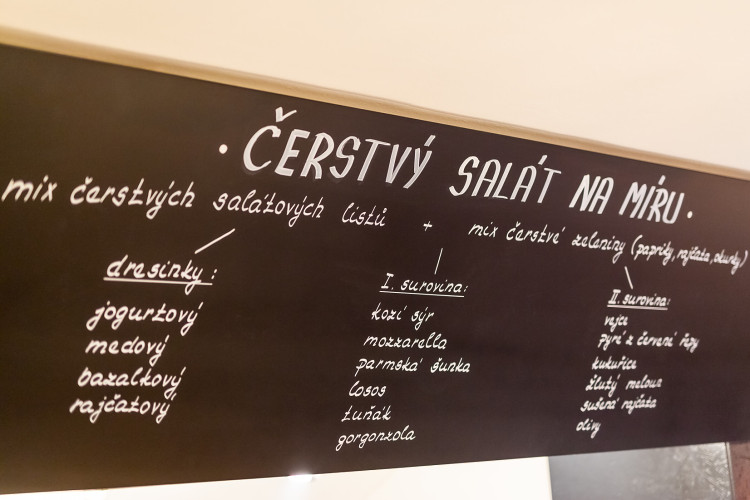 · ČERSTVÝ SALÁT NA MÍRU ·
mix čerstvých salátových listů + mix čerstvé zeleniny (papriky, rajčata, okurky)
dresinky:
jogurtový
medový
bazalkový
rajčatový
I. surovina:
kozí sýr
mozzarella
parmská šunka
losos
tuňák
gorgonzola
II. surovina:
vejce
pyré z červené řepy
kukuřice
žlutý meloun
sušená rajčata
olivy